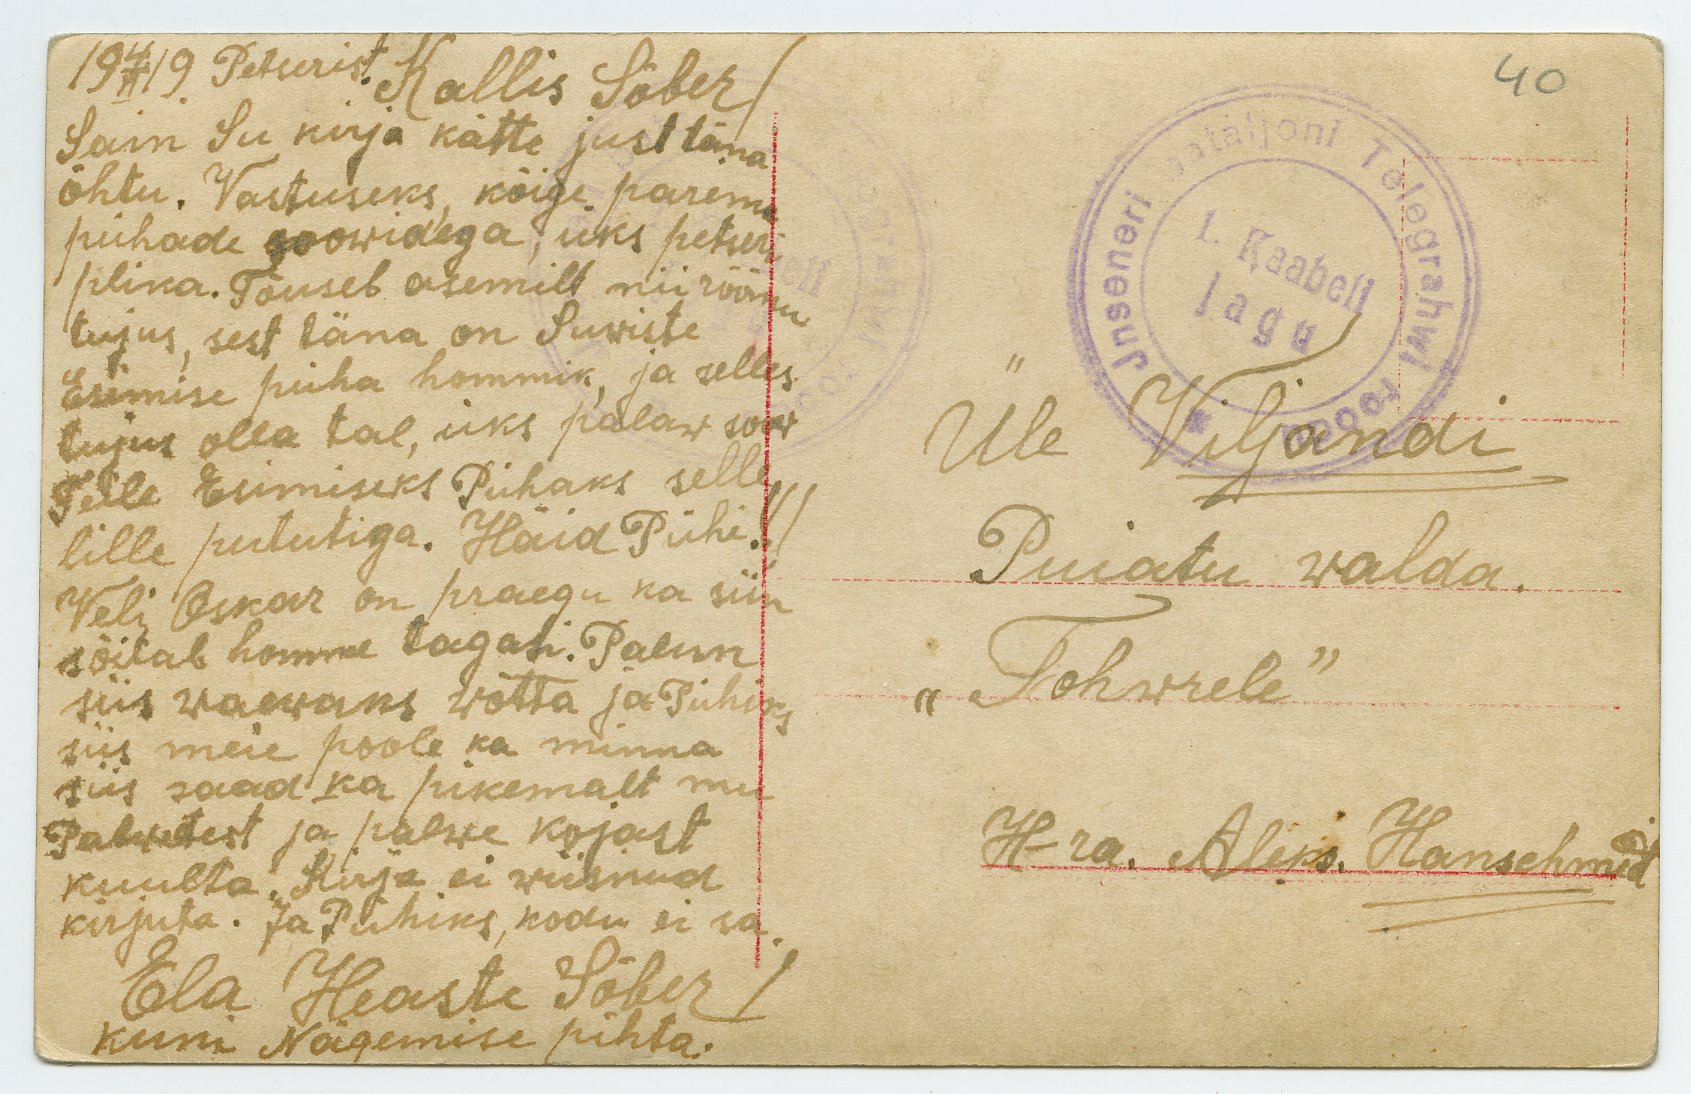 19 4/VI 19 Petserist.
Kallis Sõber!
Sain Su kirja kätte just täna
õhtu. Vastuseks, kõige parema
pühade soowidega, üks petseri
plika. Tõuseb asemilt nii rõõmu
tujus, sest täna on Suwiste
Esimise püha hommik, ja selles
tujus olla tal, üks palaw soow
Telle Esimiseks Pühaks selle
lille pututiga. Häid Pühi.!!!
Veli Oskar on praegu ka siin
sõitab homme tagasi. Palun
siis waewaks wõtta ja Pühiks
siis meie poole ka minna
siis saad ka pikemalt mu
Palwetest ja palwe kojast
kuulta. Kirja ei wiisnud
kirjuta. Ja Pühiks, kodu ei sa.
Ela Heaste Sõber!
kuni Nägemise pihta.
40
Jnseneri pataljoni Telegrahwi rood
1. Kaabeli
jagu
Üle Viljandi
Puiatu walda.
„Tohwrele"
H-ra. Aleks. Hanschmidt